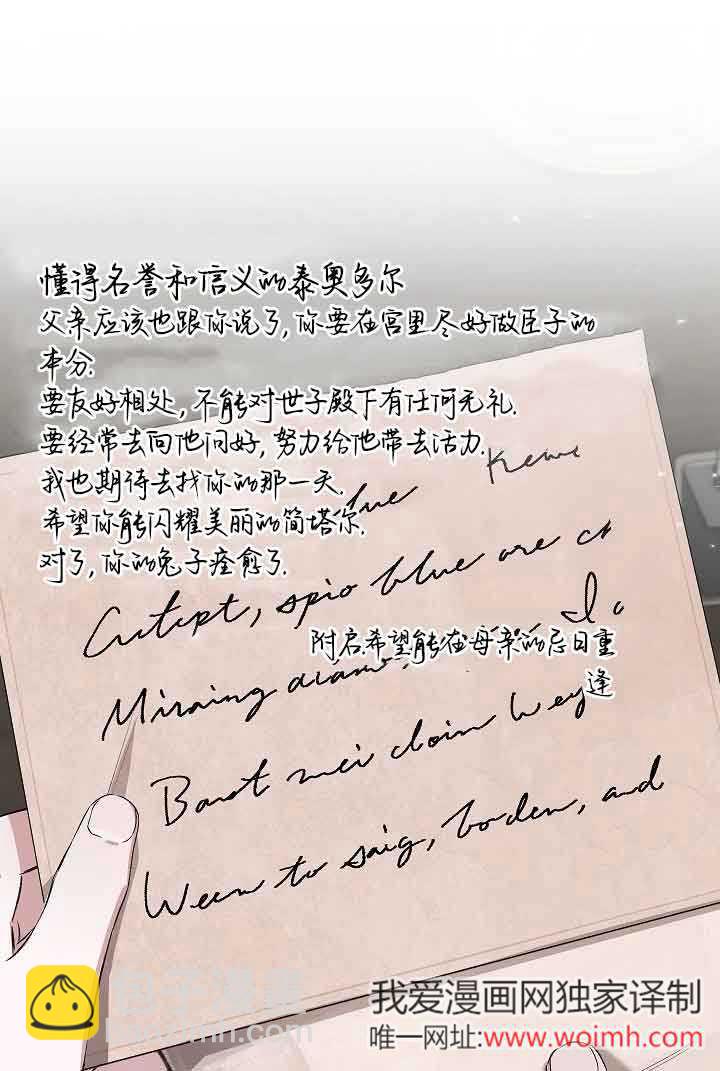 懂得名誉和信义的泰奥多尔
父亲应该也跟你说了,你要在宫里尽好做臣子的
本分.
要友好相处,不能对世子殿下有任何无礼.
要经常去向他问好,努力给他带去活力.
我也期待去找你的那一天.
希望你能闪耀美丽的简塔尔.
对了,你的兔子痊愈了.
blue are
附启.希望能在母亲的忌日重
逢
Miraing
Baot mei cloin wey
Ween to saig, borden, and
包子漫畫
baozimh.com
我爱漫画网独家译制
唯一网址:www.woimh.com